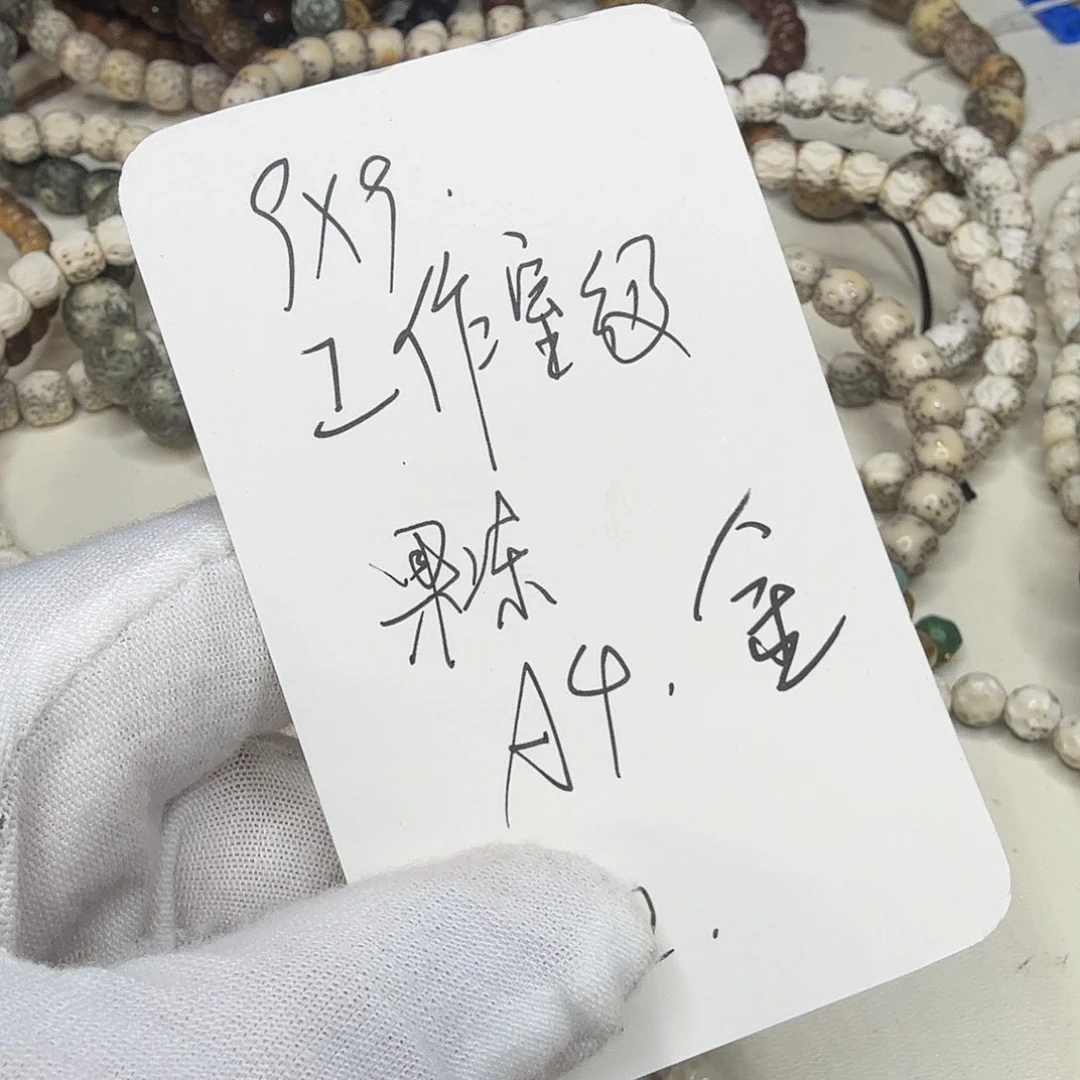 9X9.
工作室级
果冻
A4. 金